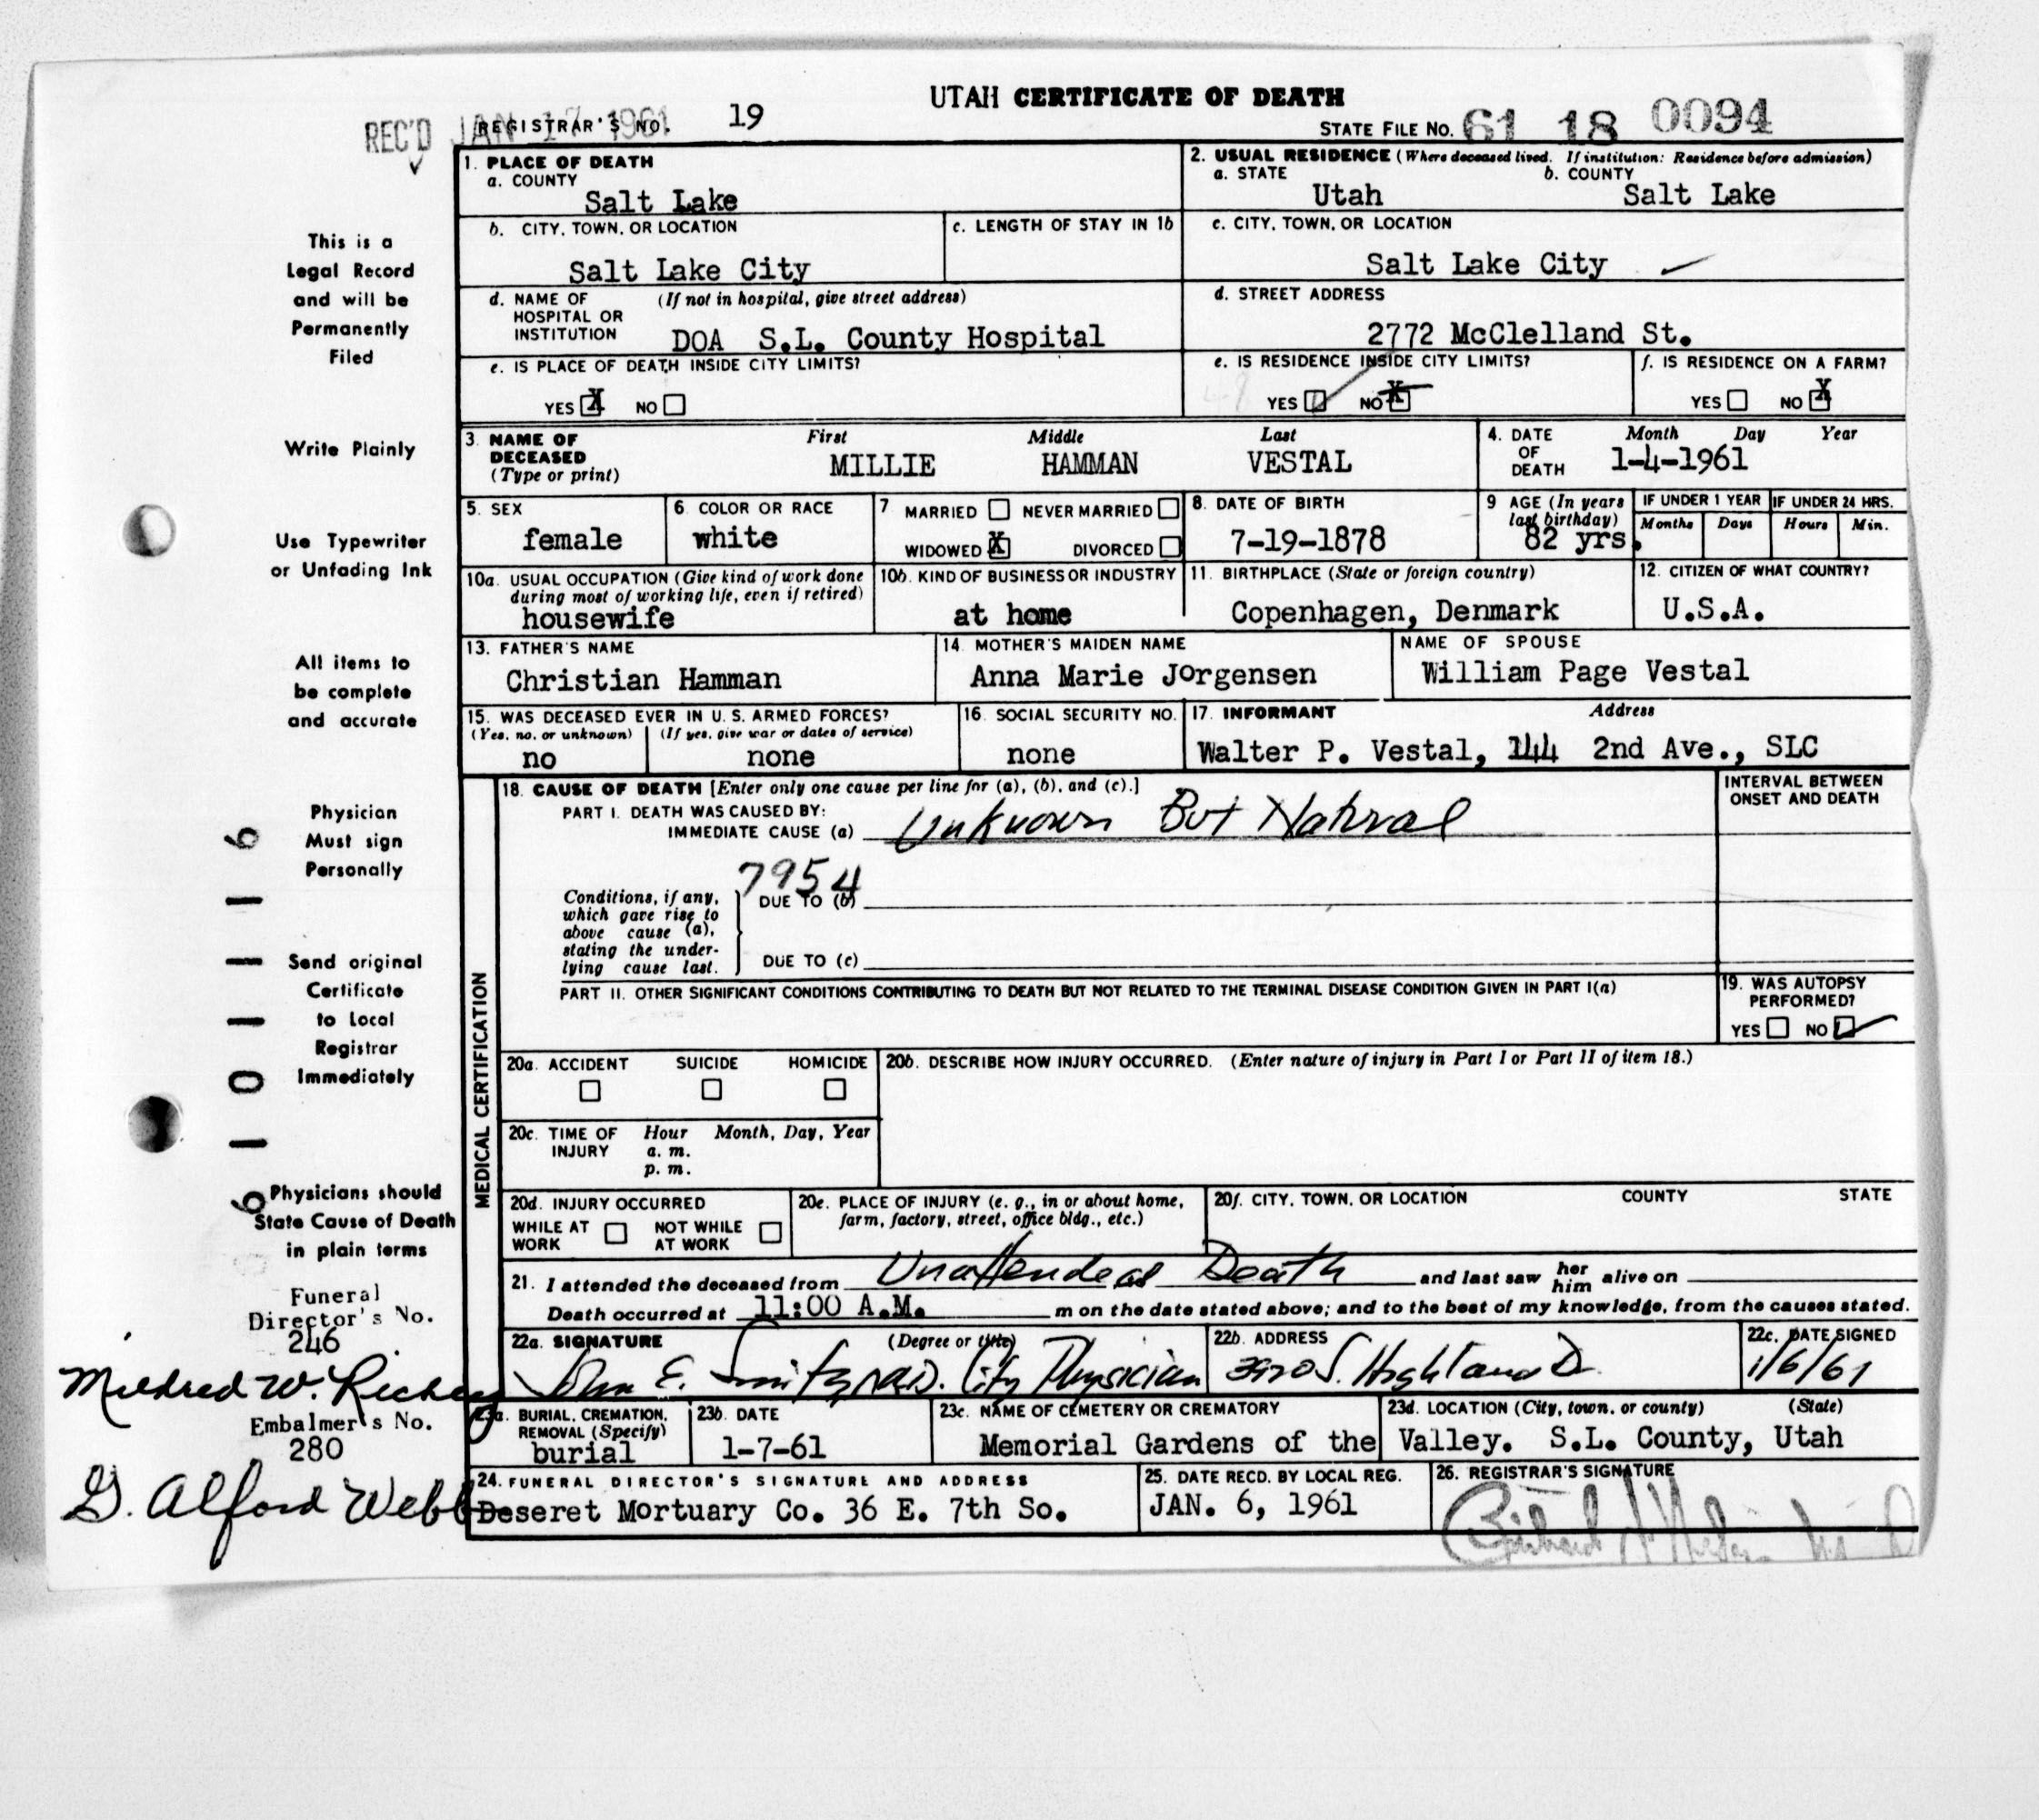 UTAH CERTIFICATE OF DEATH
REC'D JAN 17 1961
REGISTRAR'S NO. 19
STATE FILE NO. 61 18 0094
1. PLACE OF DEATH
a. COUNTY
Salt Lake
2. USUAL RESIDENCE (Where deceased lived. If institution: Residence before admission)
a. STATE b. COUNTY
Utah Salt Lake
b. CITY, TOWN, OR LOCATION
Salt Lake City
c. LENGTH OF STAY IN 1b
c. CITY, TOWN, OR LOCATION
Salt Lake City
d. NAME OF HOSPITAL OR INSTITUTION (If not in hospital, give street address)
DOA S.L. County Hospital
d. STREET ADDRESS
2772 McClelland St.
e. IS PLACE OF DEATH INSIDE CITY LIMITS?
YES X NO
e. IS RESIDENCE INSIDE CITY LIMITS?
YES NO X
f. IS RESIDENCE ON A FARM?
YES NO X
3. NAME OF DECEASED (Type or print)
First Middle Last
MILLIE HAMMAN VESTAL
4. DATE OF DEATH
Month Day Year
1-4-1961
5. SEX
female
6. COLOR OR RACE
white
7 MARRIED NEVER MARRIED
WIDOWED X DIVORCED
8. DATE OF BIRTH
7-19-1878
9 AGE (In years last birthday)
82 yrs.
IF UNDER 1 YEAR IF UNDER 24 HRS.
Months Days Hours Min.
10a. USUAL OCCUPATION (Give kind of work done during most of working life, even if retired)
housewife
10b. KIND OF BUSINESS OR INDUSTRY
at home
11. BIRTHPLACE (State or foreign country)
Copenhagen, Denmark
12. CITIZEN OF WHAT COUNTRY?
U.S.A.
13. FATHER'S NAME
Christian Hamman
14. MOTHER'S MAIDEN NAME
Anna Marie Jorgensen
NAME OF SPOUSE
William Page Vestal
15. WAS DECEASED EVER IN U.S. ARMED FORCES?
(Yes, no, or unknown) (If yes, give war or dates of service)
no none
16. SOCIAL SECURITY NO.
none
17. INFORMANT Address
Walter P. Vestal, 144 2nd Ave., SLC
MEDICAL CERTIFICATION
18. CAUSE OF DEATH [Enter only one cause per line for (a), (b), and (c).]
PART I. DEATH WAS CAUSED BY:
IMMEDIATE CAUSE (a) Unknown But Natural
INTERVAL BETWEEN ONSET AND DEATH
7954
Conditions, if any, which gave rise to above cause (a), stating the underlying cause last.
DUE TO (b)
DUE TO (c)
PART II. OTHER SIGNIFICANT CONDITIONS CONTRIBUTING TO DEATH BUT NOT RELATED TO THE TERMINAL DISEASE CONDITION GIVEN IN PART I(a)
19. WAS AUTOPSY PERFORMED?
YES NO
20a. ACCIDENT SUICIDE HOMICIDE
20b. DESCRIBE HOW INJURY OCCURRED. (Enter nature of injury in Part I or Part II of item 18.)
20c. TIME OF INJURY Hour Month, Day, Year
a. m.
p. m.
20d. INJURY OCCURRED
WHILE AT WORK NOT WHILE AT WORK
20e. PLACE OF INJURY (e. g., in or about home, farm, factory, street, office bldg., etc.)
20f. CITY, TOWN, OR LOCATION COUNTY STATE
21. I attended the deceased from Unattended Death and last saw her him alive on
Death occurred at 11:00 A.M. m on the date stated above; and to the best of my knowledge, from the causes stated.
22a. SIGNATURE (Degree or title)
E. Smith M.D. City Physician
22b. ADDRESS
S. Highland Dr.
22c. DATE SIGNED
1/6/61
23a. BURIAL, CREMATION, REMOVAL (Specify)
burial
23b. DATE
1-7-61
23c. NAME OF CEMETERY OR CREMATORY
Memorial Gardens of the Valley.
23d. LOCATION (City, town, or county) (State)
S.L. County, Utah
24. FUNERAL DIRECTOR'S SIGNATURE AND ADDRESS
Deseret Mortuary Co. 36 E. 7th So.
25. DATE RECD. BY LOCAL REG.
JAN. 6, 1961
26. REGISTRAR'S SIGNATURE
This is a
Legal Record
and will be
Permanently
Filed
Write Plainly
Use Typewriter
or Unfading Ink
All items to
be complete
and accurate
Physician
Must sign
Personally
Send original
Certificate
to Local
Registrar
Immediately
Physicians should
State Cause of Death
in plain terms
Funeral
Director's No.
246
Mildred W.
Embalmer's No.
280
G. Alford Webb